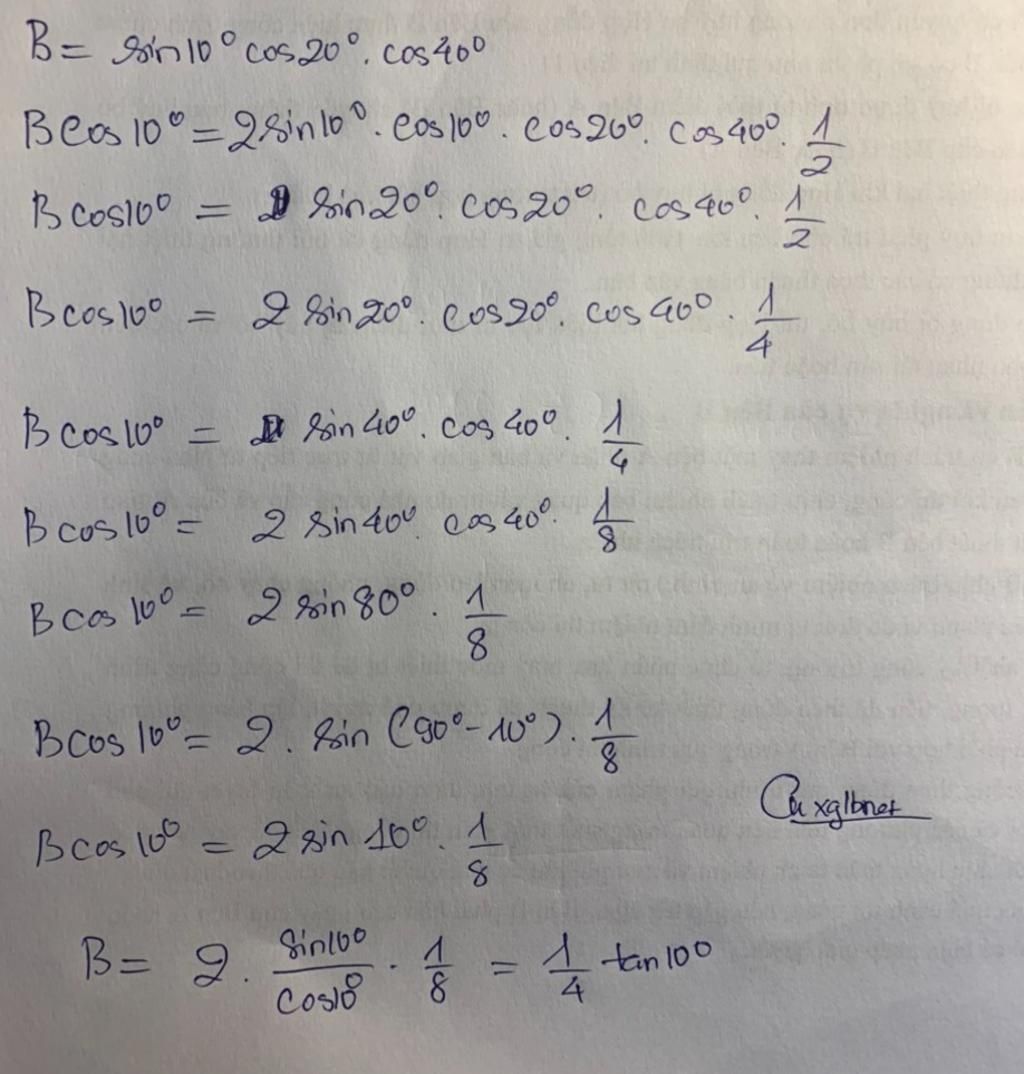 B = sin10° cos20° . cos40°
Bcos10° = 2sin10° . cos10° . cos20° . cos40° 1/2
Bcos10° = sin20° . cos20° . cos40° . 1/2
Bcos10° = 2 sin20° . cos20° . cos40° . 1/4
Bcos10° = sin40° . cos40° . 1/4
Bcos10° = 2 sin40° . cos40° . 1/8
Bcos10° = 2 sin80° . 1/8
Bcos10° = 2 . sin (90° - 10°) . 1/8
Bcos10° = 2 sin10° . 1/8
B = 2 . sin10°/cos10° . 1/8 = 1/4 tan10°